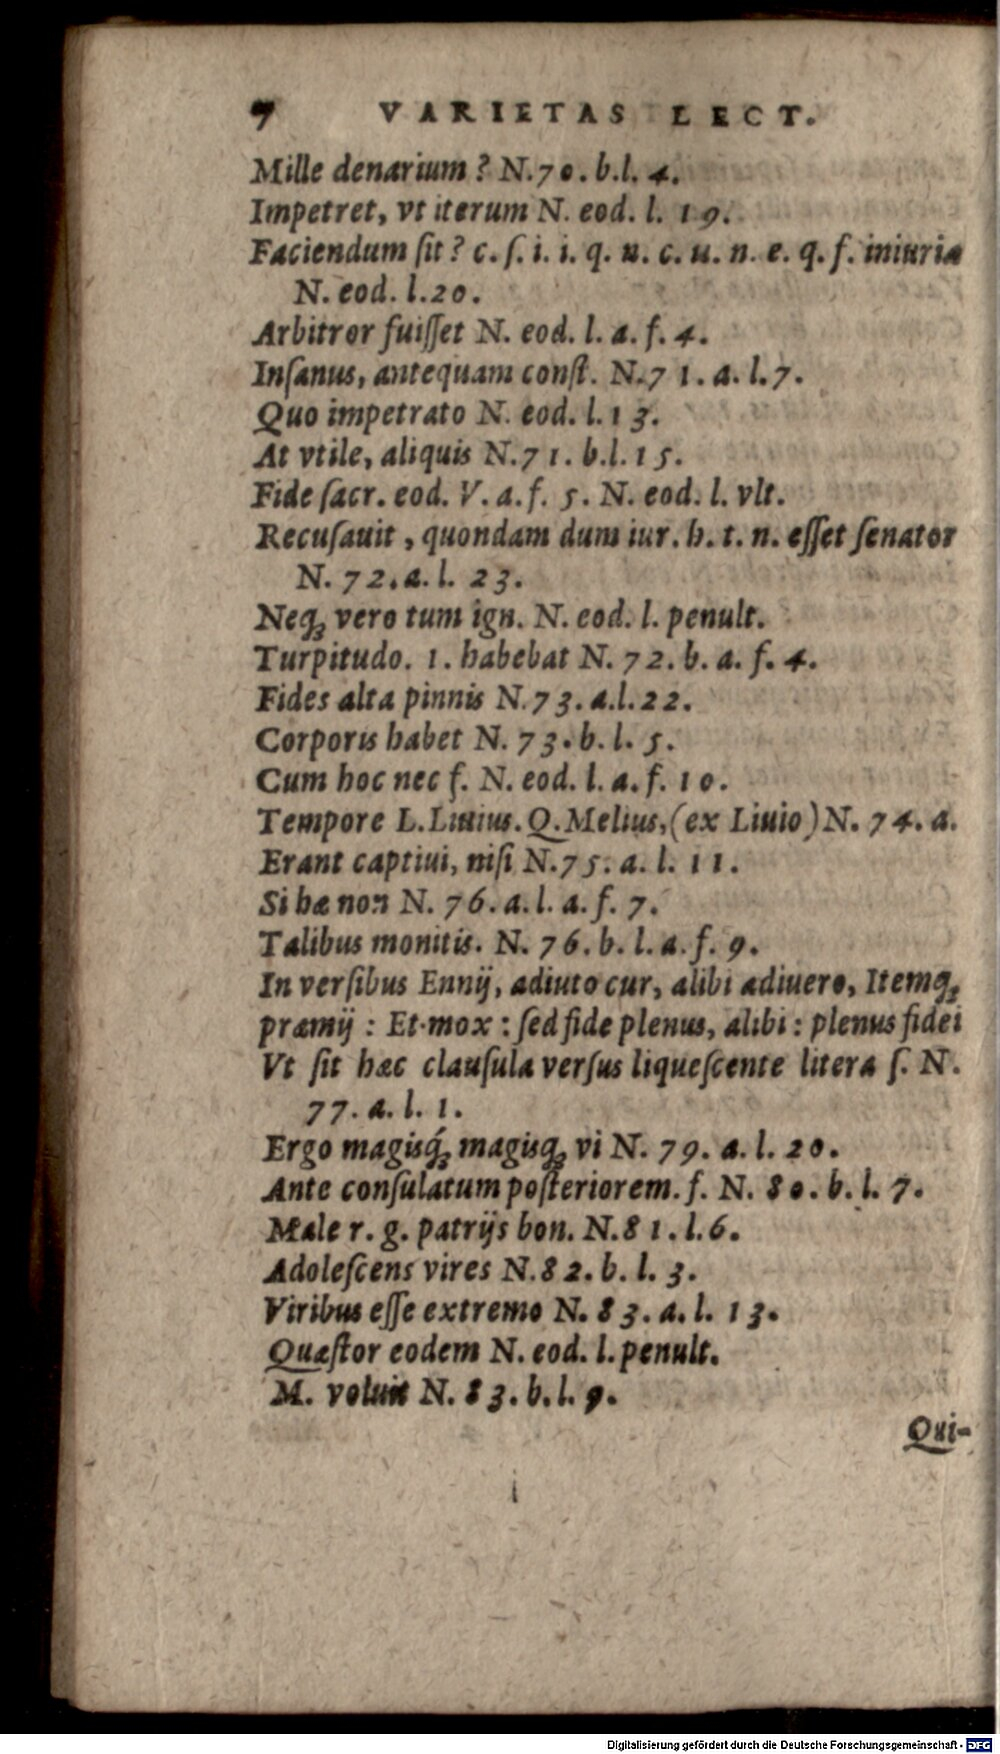 7 VARIETAS LECT.
Mille denarium? N.70.b.l.4.
Impetret, vt iterum N. eod. l. 19.
Faciendum ſit? c. ſ. i. i. q. u. c. u. n. e. q. f. iniuria
N. eod. l.20.
Arbitror fuiſſet N. eod. l. a. f. 4.
Inſanus, antequam conſt. N.71.a.l.7.
Quo impetrato N. eod. l.13.
At vtile, aliquis N.71. b.l.15.
Fide ſacr. eod. V. a. f. 5. N. eod. l. vlt.
Recuſauit, quondam dum iur. h. t. n. eſſet ſenator
N. 72.a.l. 23.
Neq́ꝫ vero tum ign. N. eod. l. penult.
Turpitudo. 1. habebat N. 72. b. a. f. 4.
Fides alta pinnis N.73.a.l.22.
Corporis habet N. 73.b. l. 5.
Cum hoc nec f. N. eod. l. a. f. 10.
Tempore L. Liuius. Q. Melius, (ex Liuio) N. 74. a.
Erant captiui, niſi N.75. a. l. 11.
Si hæ non N. 76. a. l. a. f. 7.
Talibus monitis. N. 76. b. l. a. f. 9.
In verſibus Ennij, adiuto cur, alibi adiuero, Itemqꝫ
præmij : Et mox : ſed fide plenus, alibi : plenus fidei
Vt ſit hæc clauſula verſus liqueſcente litera ſ. N.
77. a. l. 1.
Ergo magisq́ꝫ magisqꝫ vi N. 79. a. l. 20.
Ante conſulatum poſteriorem. f. N. 80. b. l. 7.
Male r. g. patrijs bon. N.81. l.6.
Adoleſcens vires N.82. b. l. 3.
Viribus eſſe extremo N. 83. a. l. 13.
Quæſtor eodem N. eod. l. penult.
M. voluit N. 83. b. l. 9.
Qui-
Digitalisierung gefördert durch die Deutsche Forschungsgemeinschaft - DFG